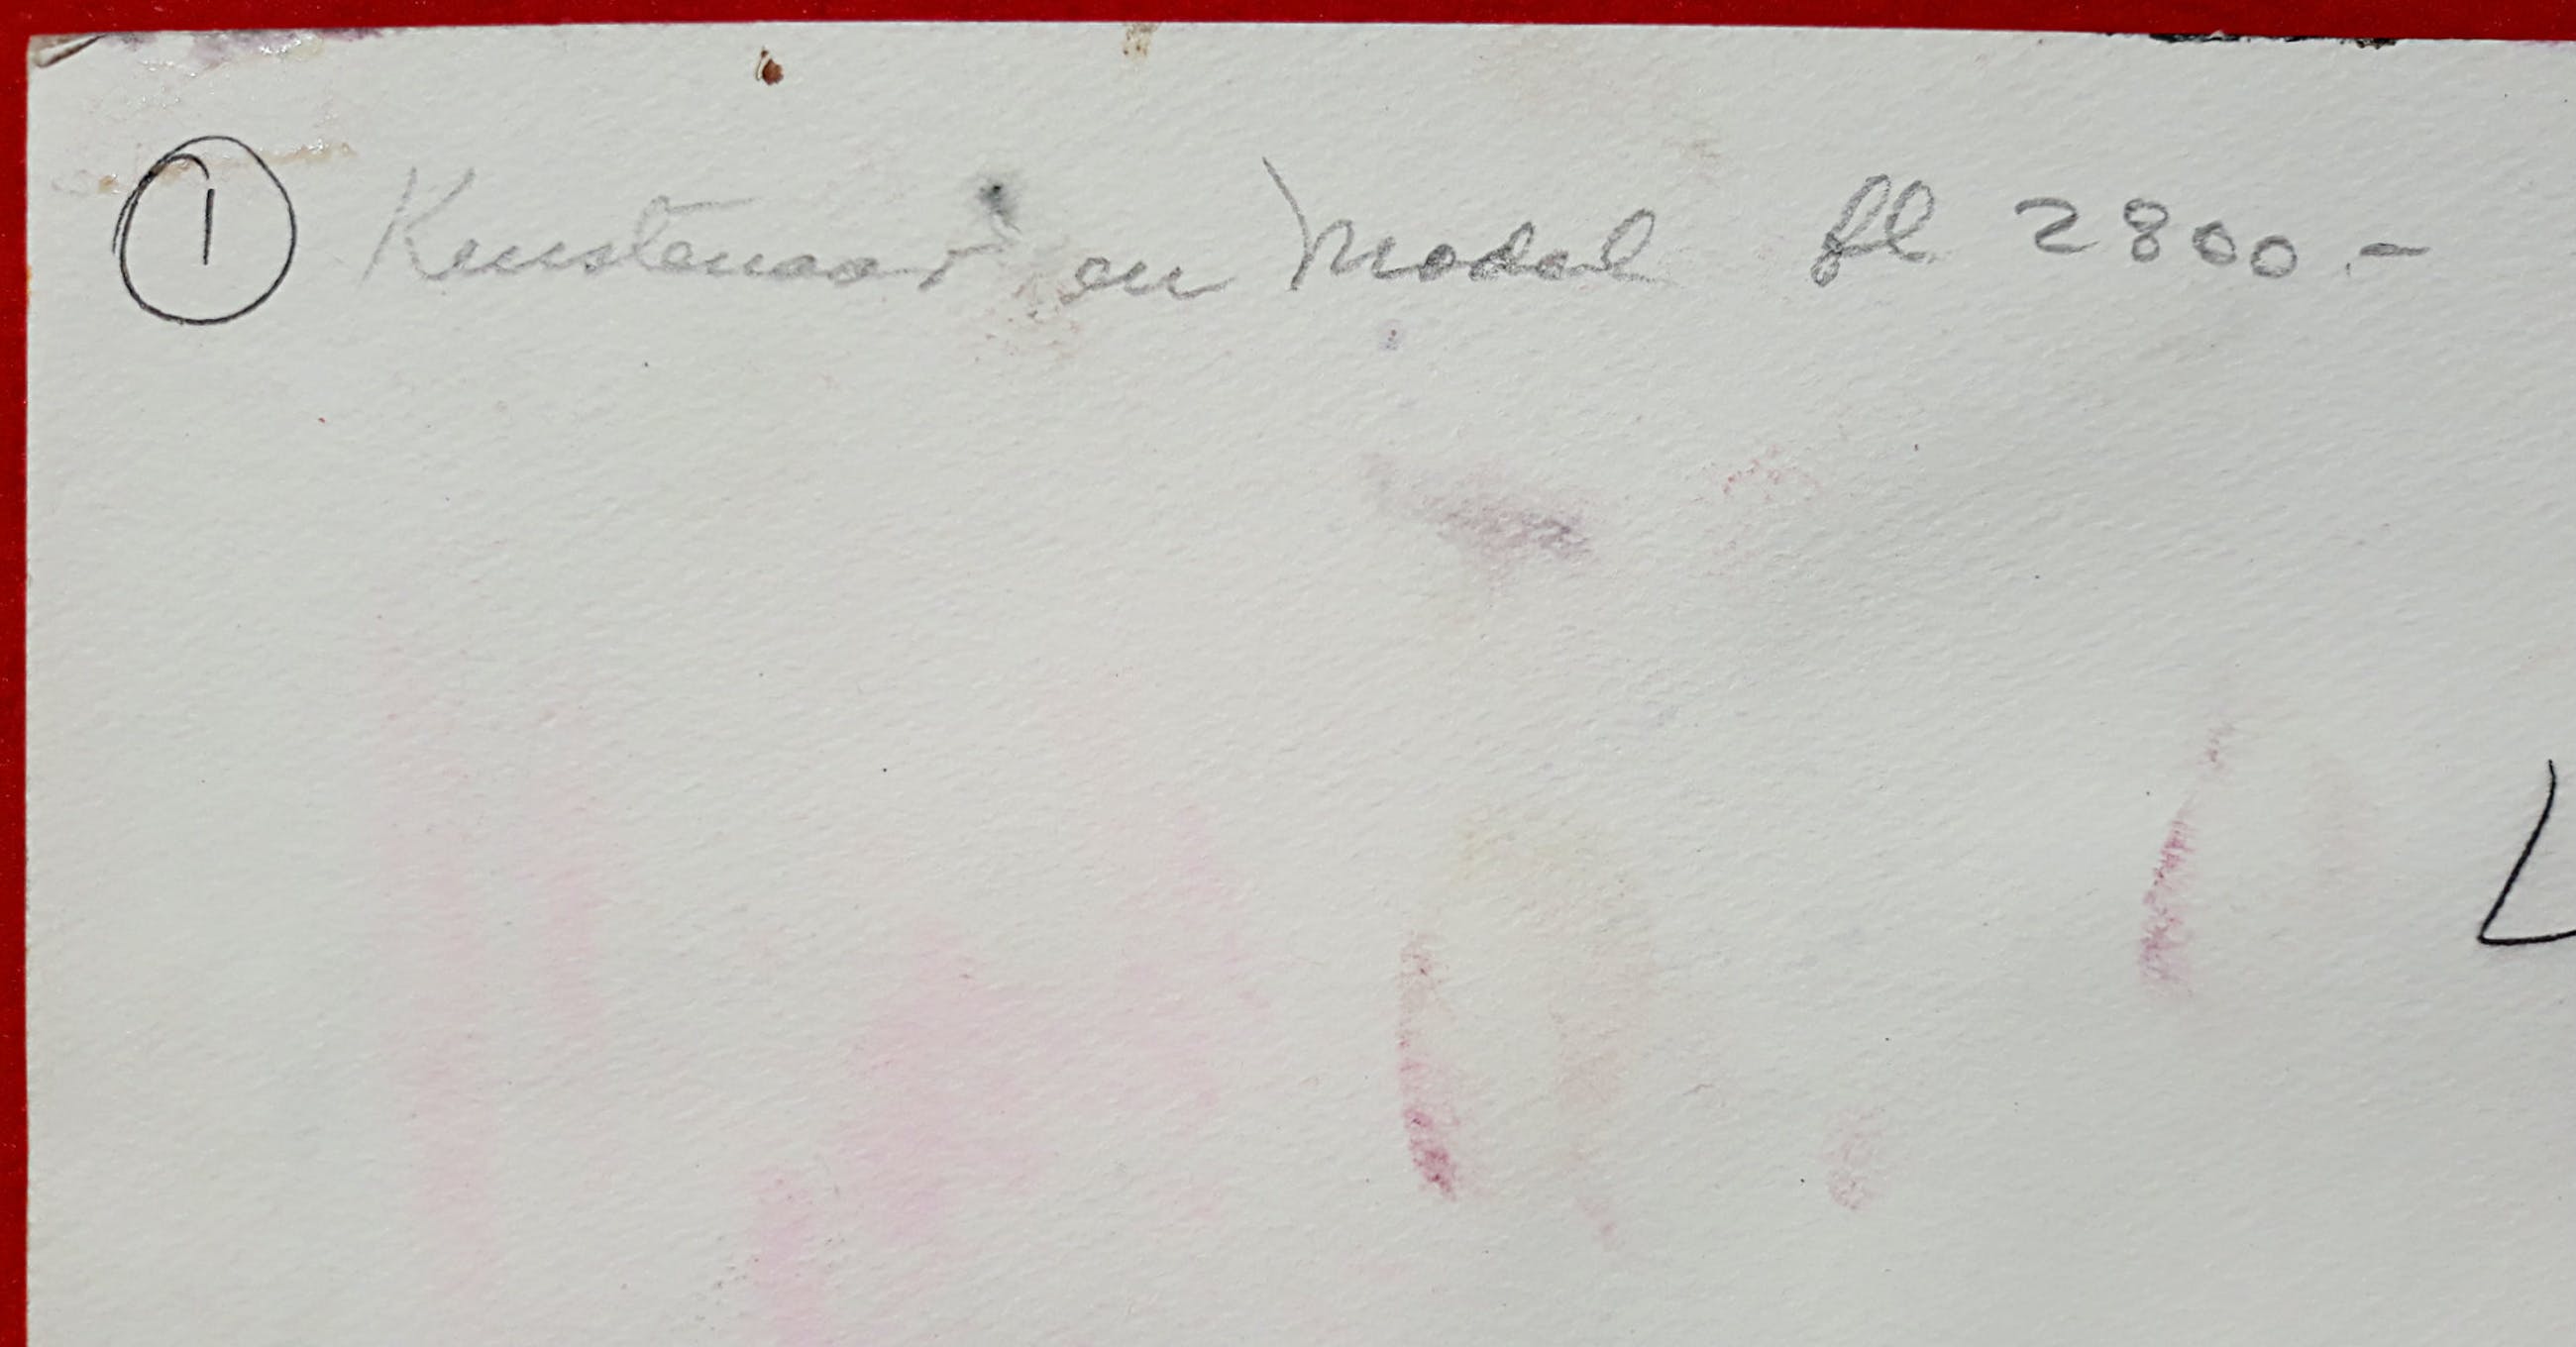 ① Kunstenaar en Model fl 2800.-
L